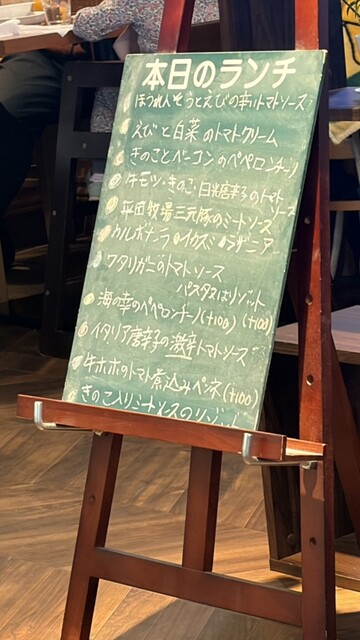 本日のランチ
ほうれんそうとえびの辛いトマトソース
えびと白菜のトマトクリーム
きのことベーコンのペペロンチーノ
牛モツ・きのこ・日光唐辛子のトマト
ソース
平田牧場三元豚のミートソース
カルボナーラ・イカスミ・ラザニアー
ワタリガニのトマトソース
パスタ又はリゾット
海の幸のペペロンチーノ(+100) (+100)
イタリア唐辛子の激辛トマトソース
牛ホホのトマト煮込みペンネ(+100)
きのこ入りミートソースのリゾット